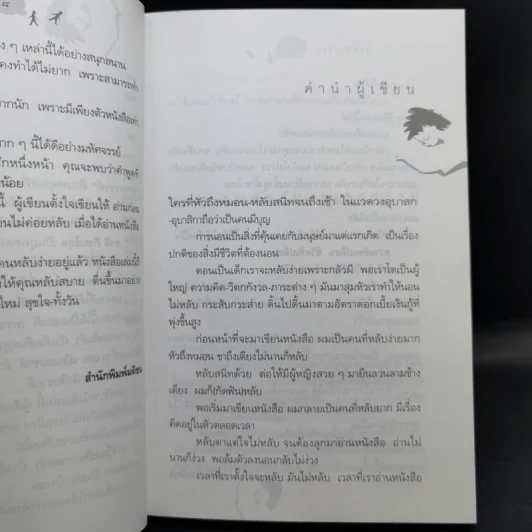 ๘
ง ๆ เหล่านี้ได้อย่างสนุกสนาน
คงทำได้ไม่ยาก เพราะสามารถทำ
ากนัก เพราะมีเพียงตัวหนังสือเท่า
าก ๆ นี้ได้ดีอย่างมหัศจรรย์
ักหนึ่งหน้า คุณจะพบว่าคำพูดที่
น้อย
นี้ ผู้เขียนตั้งใจเขียนให้ อ่านก่อน
อนไม่ค่อยหลับ เมื่อได้อ่านหนังสือ
คนหลับง่ายอยู่แล้ว หนังสือเล่มนี้ก็
ให้คุณหลับสบาย ตื่นขึ้นมาอย่าง
ใหม่ สุขใจ-ทั้งวัน
สำนักพิมพ์มติชน
คำนำผู้เขียน
ใครที่หัวถึงหมอน-หลับสนิทจนถึงเช้า ในแวดวงอุบาสก
-อุบาสิกาถือว่าเป็นคนมีบุญ
การนอนเป็นสิ่งที่คุ้นเคยกับมนุษย์มาแต่แรกเกิด เป็นเรื่อง
ปกติของสิ่งมีชีวิตที่ต้องนอน
ตอนเป็นเด็กเราจะหลับง่ายเพราะกลัวผี พอเราโตเป็นผู้
ใหญ่ ความคิด-วิตกกังวล-ภาระต่าง ๆ มันมาสุมหัวเราทำให้นอน
ไม่หลับ กระสับกระส่าย ดิ้นไปดิ้นมาตามอัตราดอกเบี้ยเงินกู้ที่
พุ่งขึ้นสูง
ก่อนหน้าที่จะมาเขียนหนังสือ ผมเป็นคนที่หลับง่ายมาก
หัวถึงหมอน ขาถึงเตียงไม่นานก็หลับ
หลับสนิทด้วย ต่อให้มีผู้หญิงสวย ๆ มายืนลวนลามข้าง
เตียง ผมก็(กัดฟัน)หลับ
พอเริ่มมาเขียนหนังสือ ผมกลายเป็นคนที่หลับยาก มีเรื่อง
คิดอยู่ในหัวตลอดเวลา
หลับตาแต่ใจไม่หลับ จนต้องลุกมาอ่านหนังสือ อ่านไม่
นานก็ง่วง พอล้มตัวลงนอนกลับไม่ง่วง
เวลาที่เราตั้งใจจะหลับ มันไม่หลับ เวลาที่เราอ่านหนังสือ